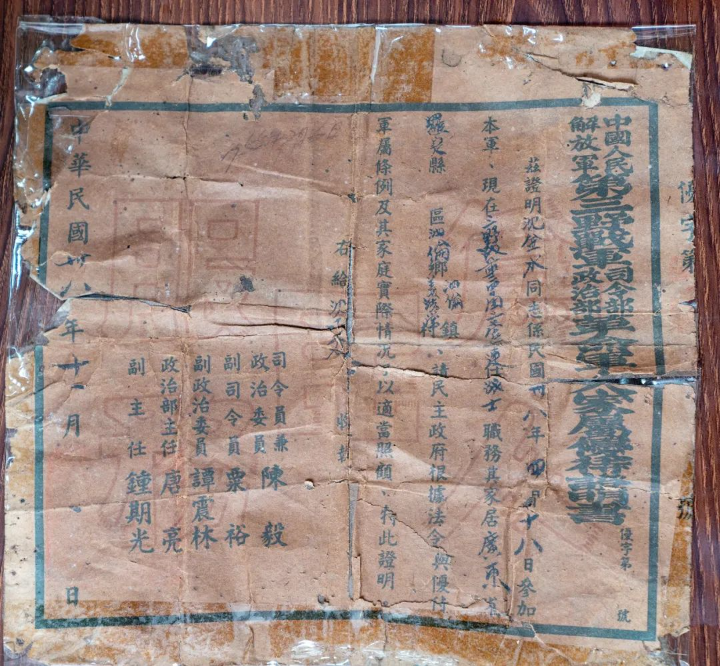 優字第 號
中國人民解放軍第三野戰軍司令部政治部革命軍人家屬優待證明書
優字第 號
茲證明沈 同志係民國卅八年四月十八日參加
本軍、現在三野 戰士職務其家居廣東省
羅定縣 區 鄉 鎮 村、請民主政府根據法令與優待
軍屬條例及其家庭實際情况予以適當照顧、特此證明
右給沈 收執
司令員兼政治委員 陳毅
副司令員 粟裕
副政治委員 譚震林
政治部主任 唐亮
副主任 鍾期光
中華民國卅八年十一月 日